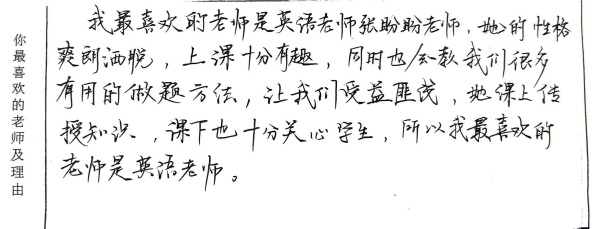 你最喜欢的老师及理由
我最喜欢的老师是英语老师张盼盼老师，她的性格
爽朗洒脱，上课十分有趣，同时也会教我们很多
有用的做题方法，让我们受益匪浅，她课上传
授知识、课下也十分关心学生，所以我最喜欢的
老师是英语老师。